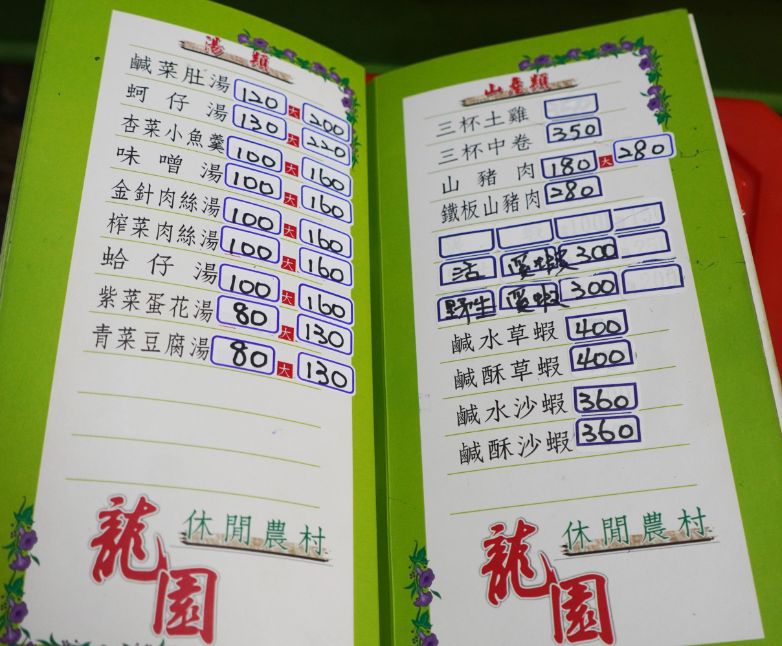 湯類
鹹菜肚湯 120 大 200
蚵仔湯 130 大 220
杏菜小魚羹 100 大 160
味噌湯 100 大 160
金針肉絲湯 100 大 160
榨菜肉絲湯 100 大 160
蛤仔湯 100 大 160
紫菜蛋花湯 80 大 130
青菜豆腐湯 80 大 130
龍園 休閒農村
山產類
三杯土雞
三杯中卷 350
山豬肉 180 大 280
鐵板山豬肉 280
活 溪蝦 300
野生 溪蝦 300
鹹水草蝦 400
鹹酥草蝦 400
鹹水沙蝦 360
鹹酥沙蝦 360
龍園 休閒農村